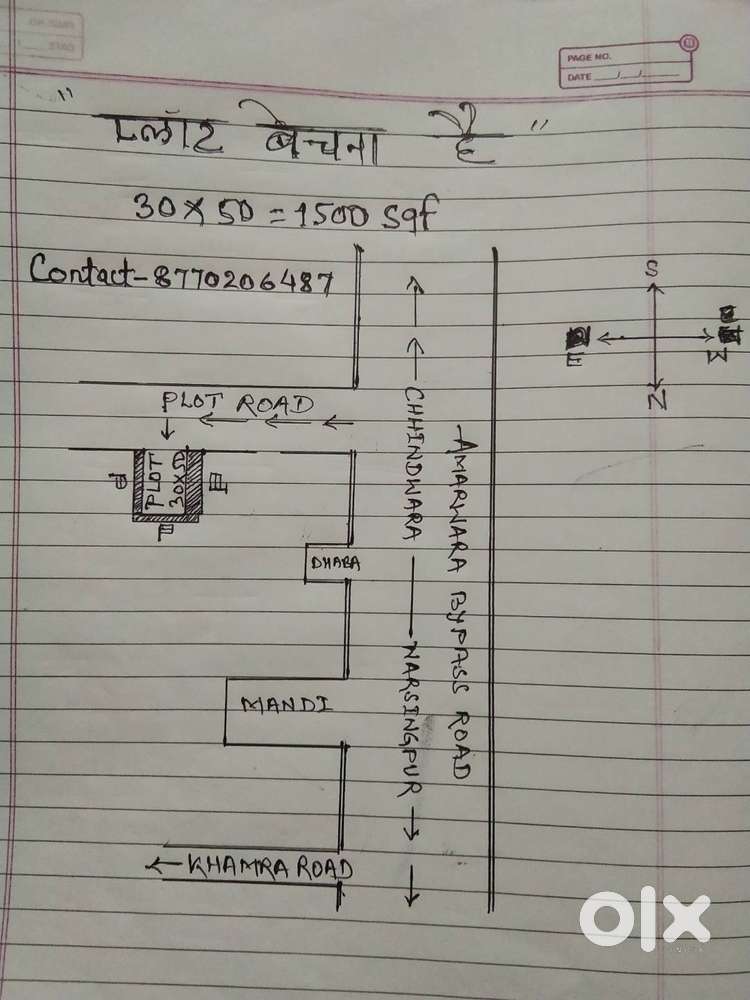 PAGE NO.
DATE
" प्लॉट बेचना है "
30×50 = 1500 Sqf
Contact-8770206487
S
E
W
N
PLOT ROAD
PLOT
30×50
CHHINDWARA
NARSINGPUR
AMARWARA BYPASS ROAD
DHABA
MANDI
KHAMRA ROAD
olx